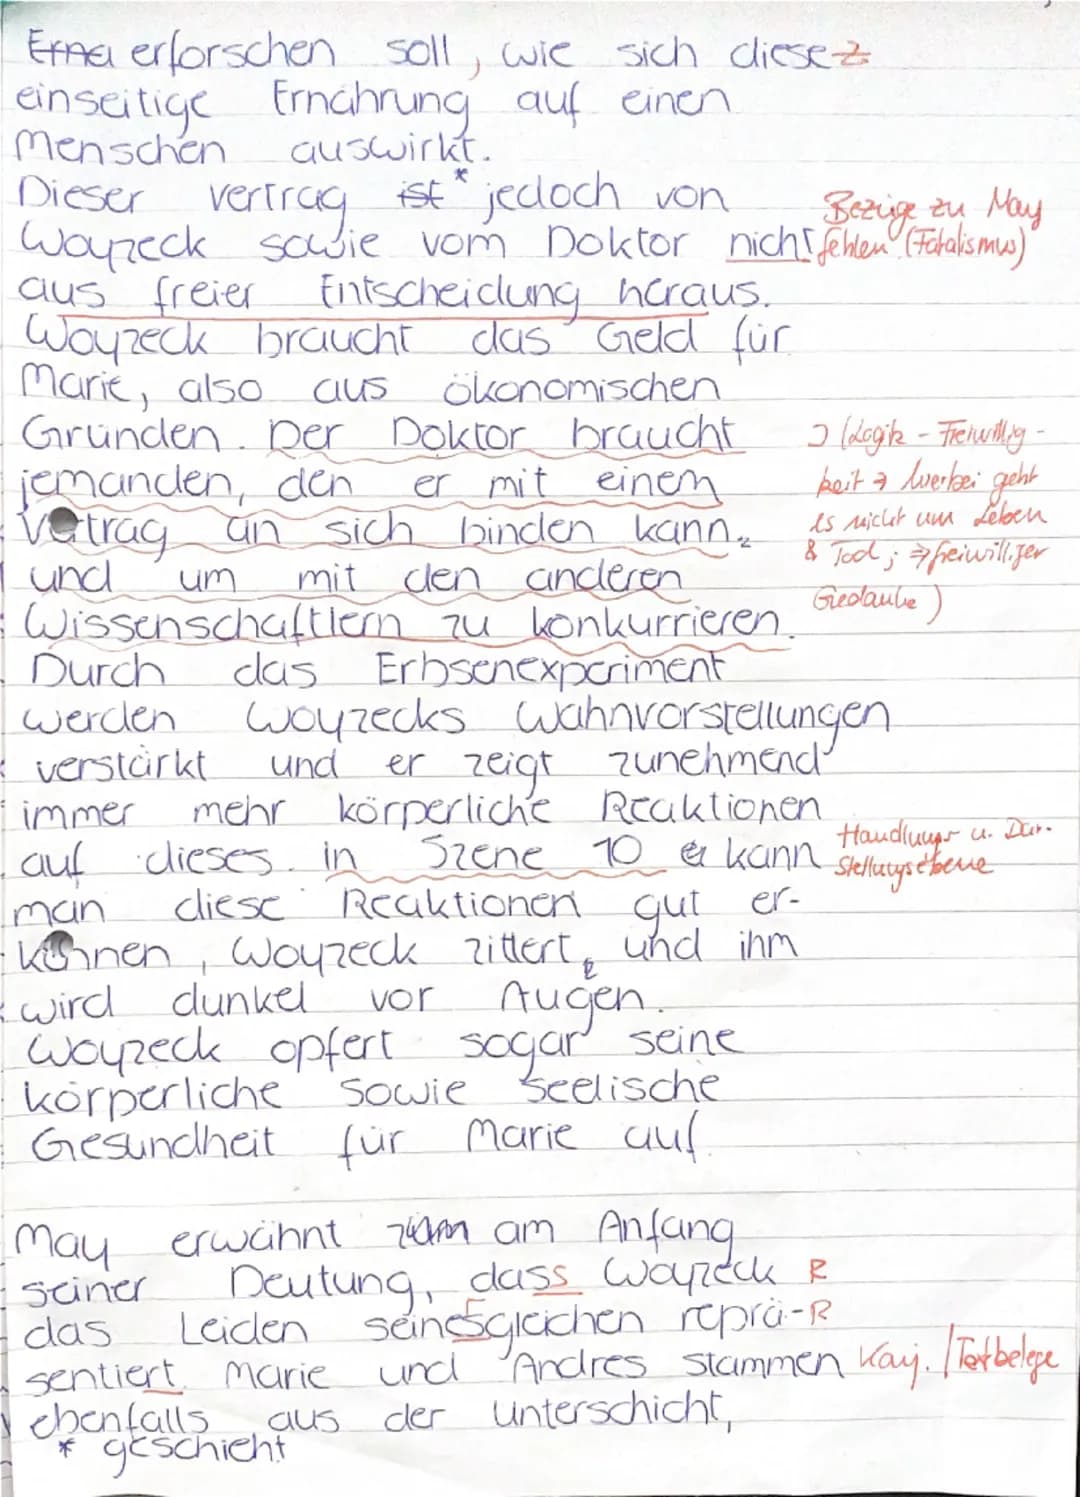 erforschen soll, wie sich diese
einseitige Ernährung auf einen
Menschen auswirkt.
Dieser Vertrag ist* jedoch von
Woyzeck sowie vom Doktor nicht
Bezüge zu May
fehlen (Fatalismus)
aus freier Entscheidung heraus.
Woyzeck braucht das Geld für
Marie, also aus ökonomischen
Gründen. Der Doktor braucht
jemanden, den er mit einem
Vertrag an sich binden kann,
und um mit den anderen
Wissenschaftlern zu konkurrieren.
(Logik - Freiwillig-
keit → hierbei geht
es nicht um Leben
& Tod; ⇒ freiwilliger
Gedanke)
Durch das Erbsenexperiment
werden Woyzecks Wahnvorstellungen
verstärkt und er zeigt zunehmend
immer mehr körperliche Reaktionen
auf dieses. in Szene 10 kann
Handlungs u. Dar-
stellungsebene
man diese Reaktionen gut er-
kennen, Woyzeck zittert, und ihm
wird dunkel vor Augen.
Woyzeck opfert sogar seine
körperliche sowie seelische
Gesundheit für Marie auf.
May erwähnt am Anfang
seiner Deutung, dass Woyzeck R
das Leiden seinesgleichen reprä- R
sentiert. Marie und Andres stammen Konj. / Textbelege
ebenfalls aus der Unterschicht,
* geschieht